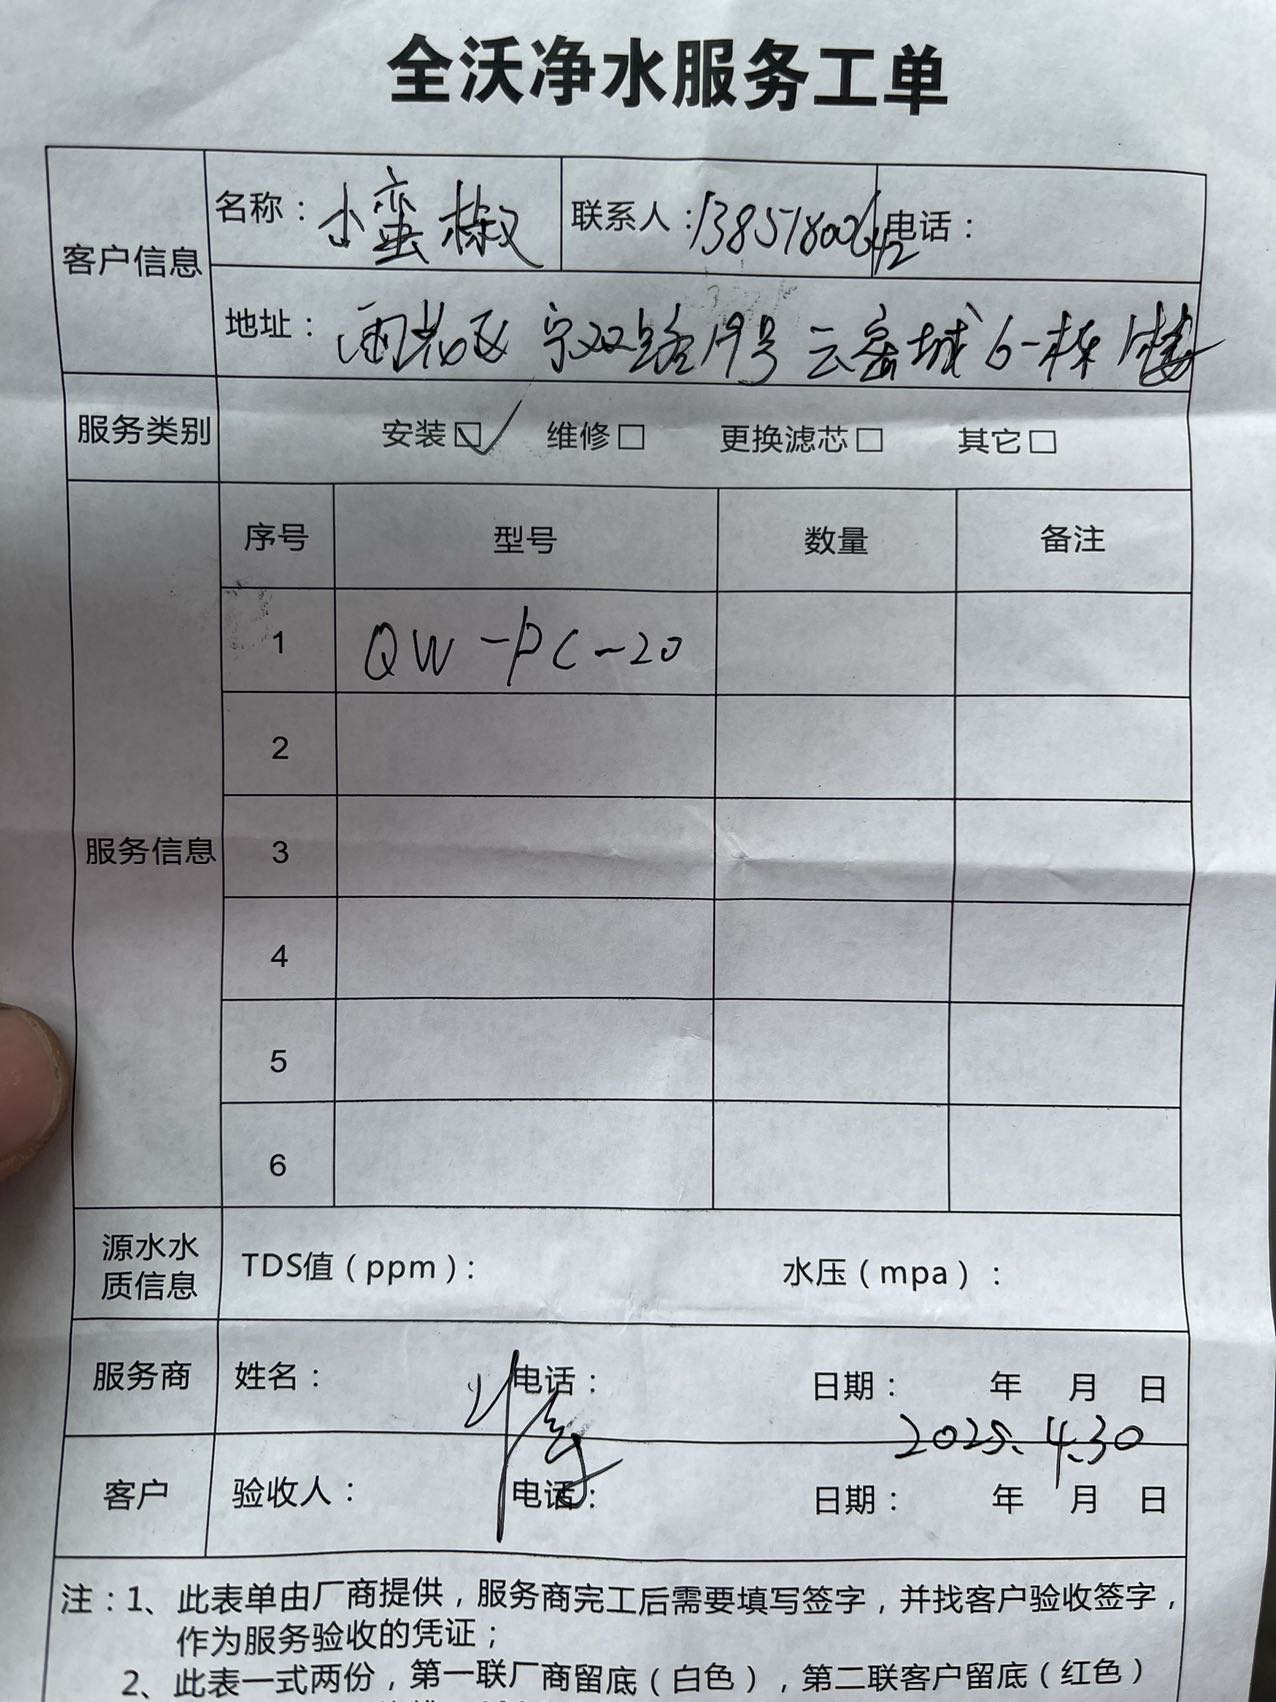 全沃净水服务工单
客户信息
名称：小蛮椒 联系人：13851800642 电话：
地址：雨花区 宁双路19号 云密城 6-栋 1楼
服务类别 安装☑ 维修□ 更换滤芯□ 其它□
服务信息
序号 型号 数量 备注
1 QW-PC-20
2
3
4
5
6
源水水质信息 TDS值（ppm）： 水压（mpa）：
服务商 姓名： 电话： 日期： 年 月 日
2025.4.30
客户 验收人： 电话： 日期： 年 月 日
注：1、此表单由厂商提供，服务商完工后需要填写签字，并找客户验收签字，
作为服务验收的凭证；
2、此表一式两份，第一联厂商留底（白色），第二联客户留底（红色）